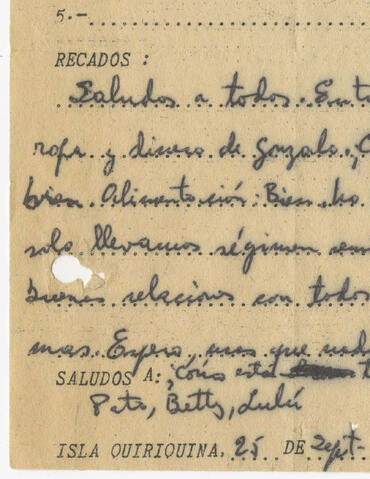 5.-
RECADOS :
Saludos a todos. Ento
ropa y dinero de Gonzalo,
bien. Alimentación: Bien, no
solo llevamos régimen
buenas relaciones con todos
mas. Espero, mas que nad
SALUDOS A: ¿Cómo está
Pato, Betty, Lulú
ISLA QUIRIQUINA, 25 DE Sept-